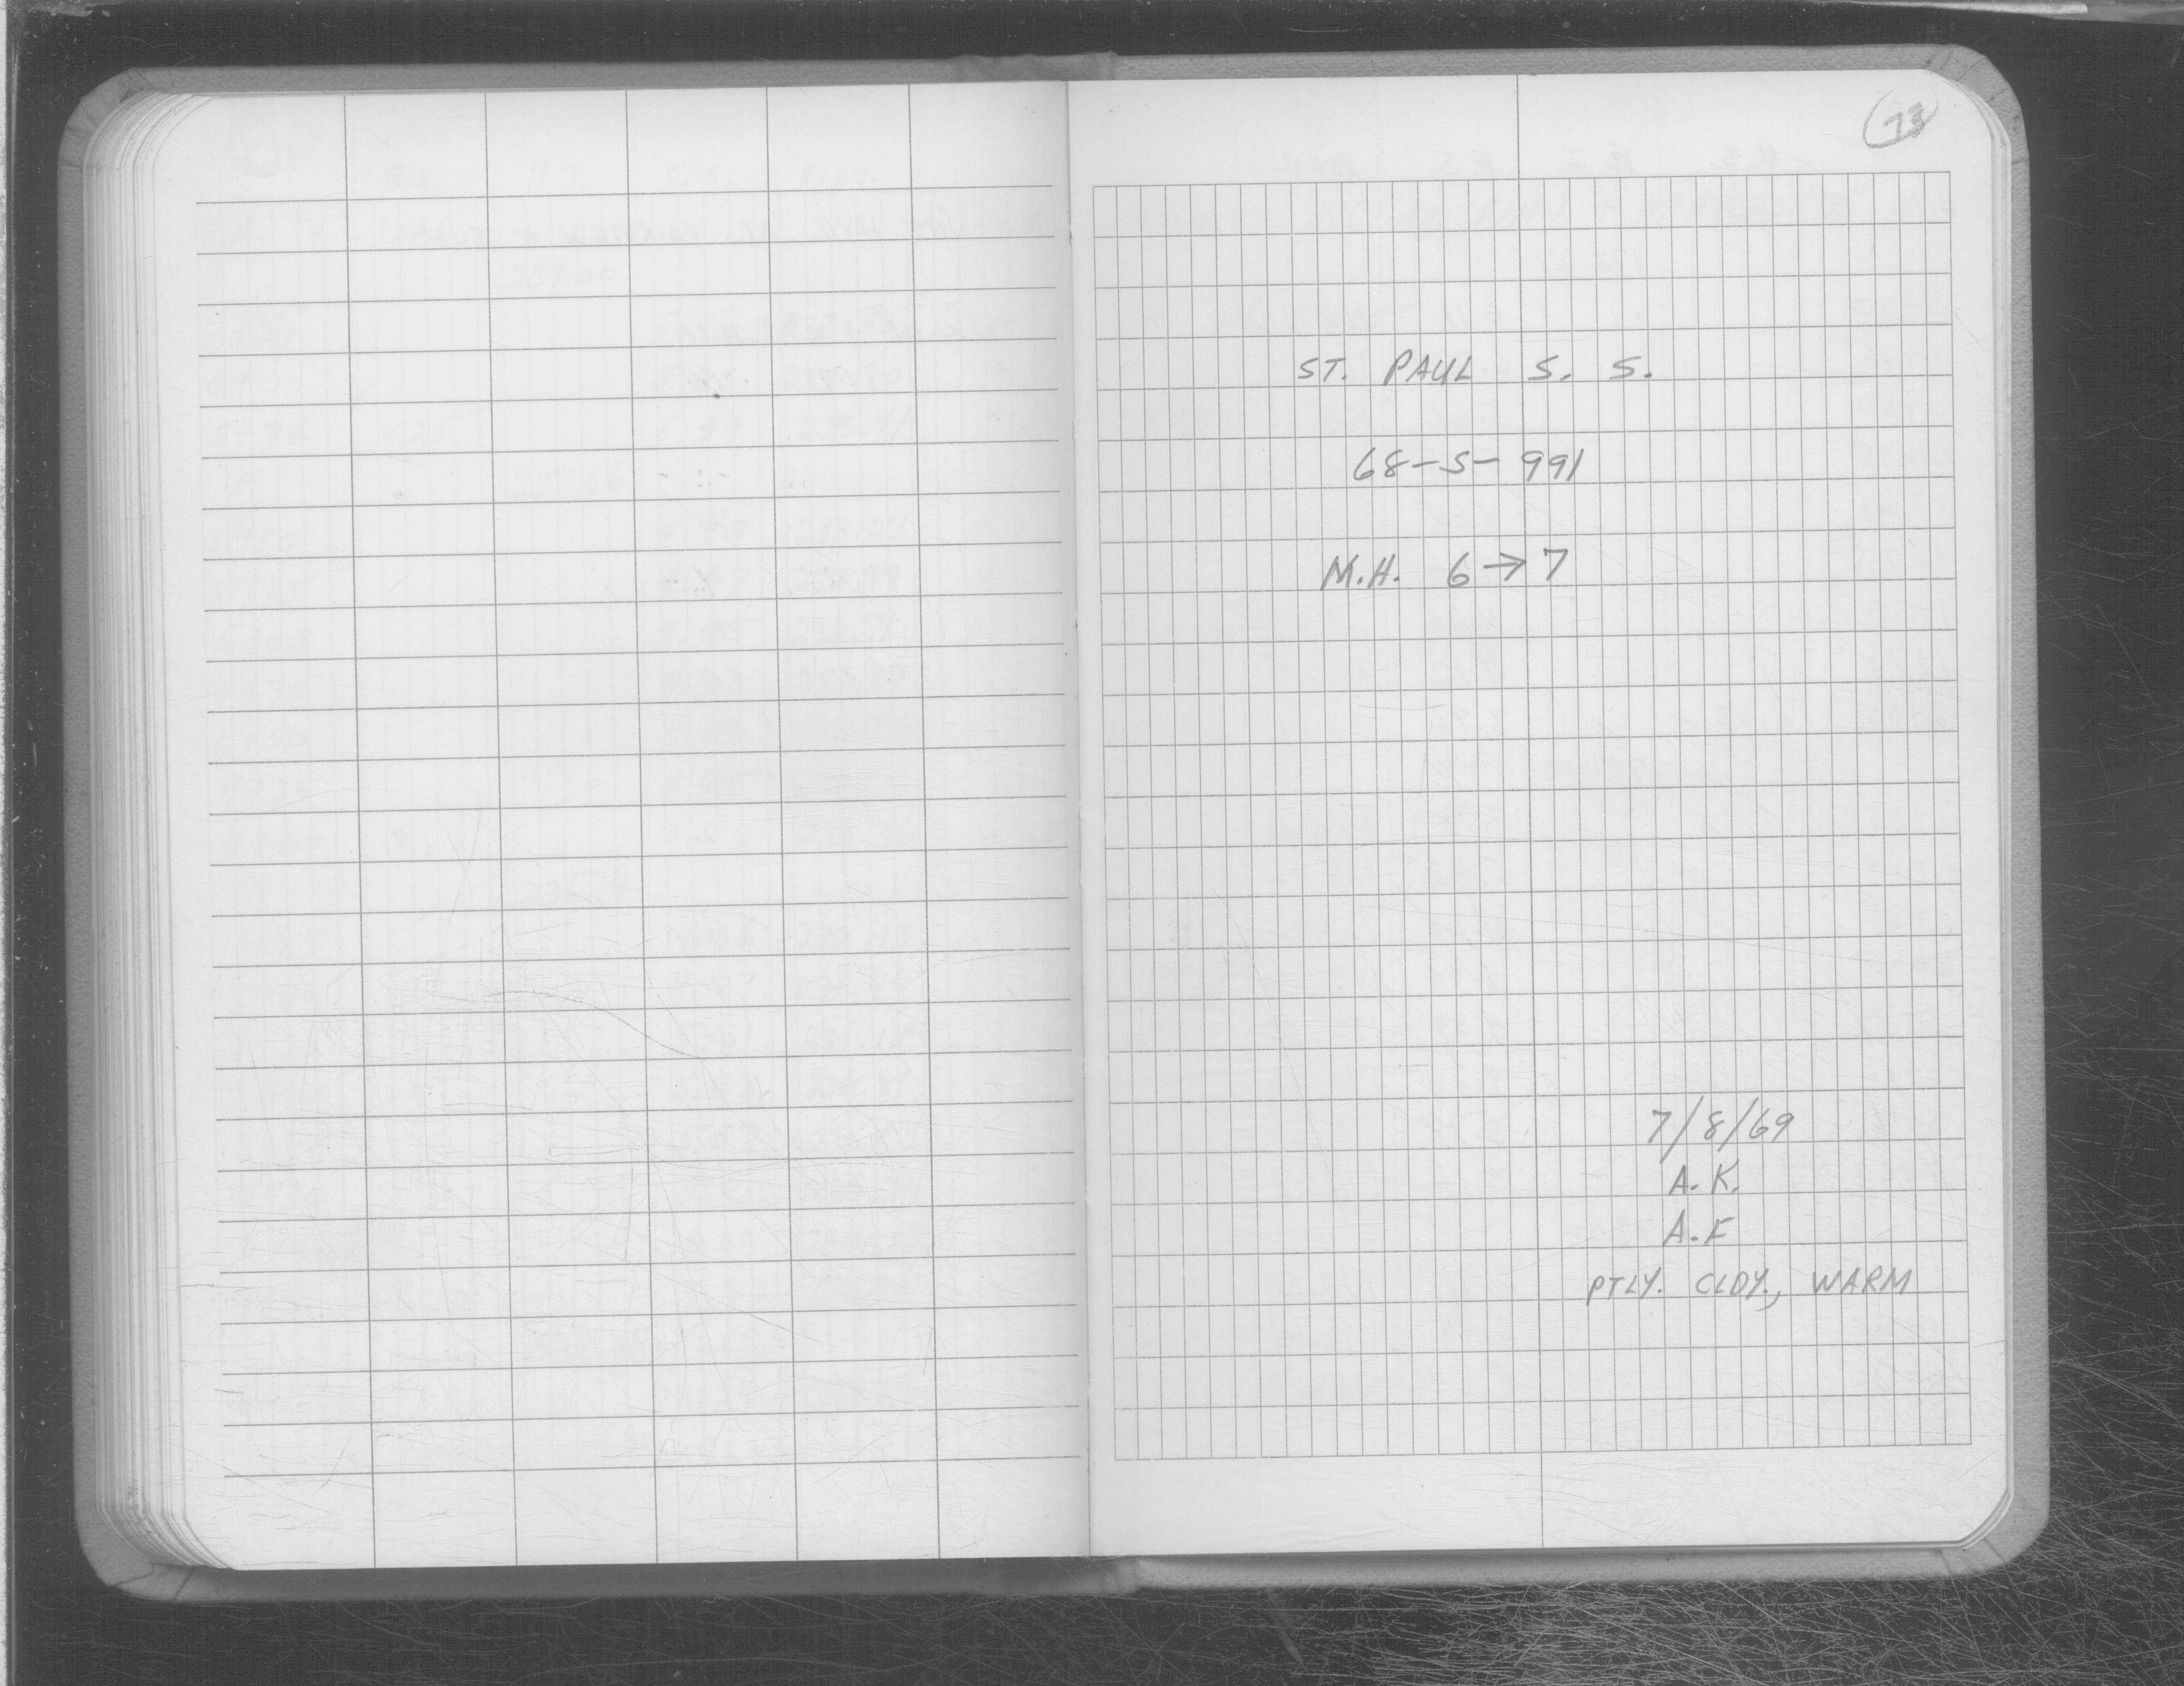 73
ST. PAUL S. S.
68-S-991
M.H. 6→7
7/8/69
A.K.
A.F
PTLY. CLDY., WARM